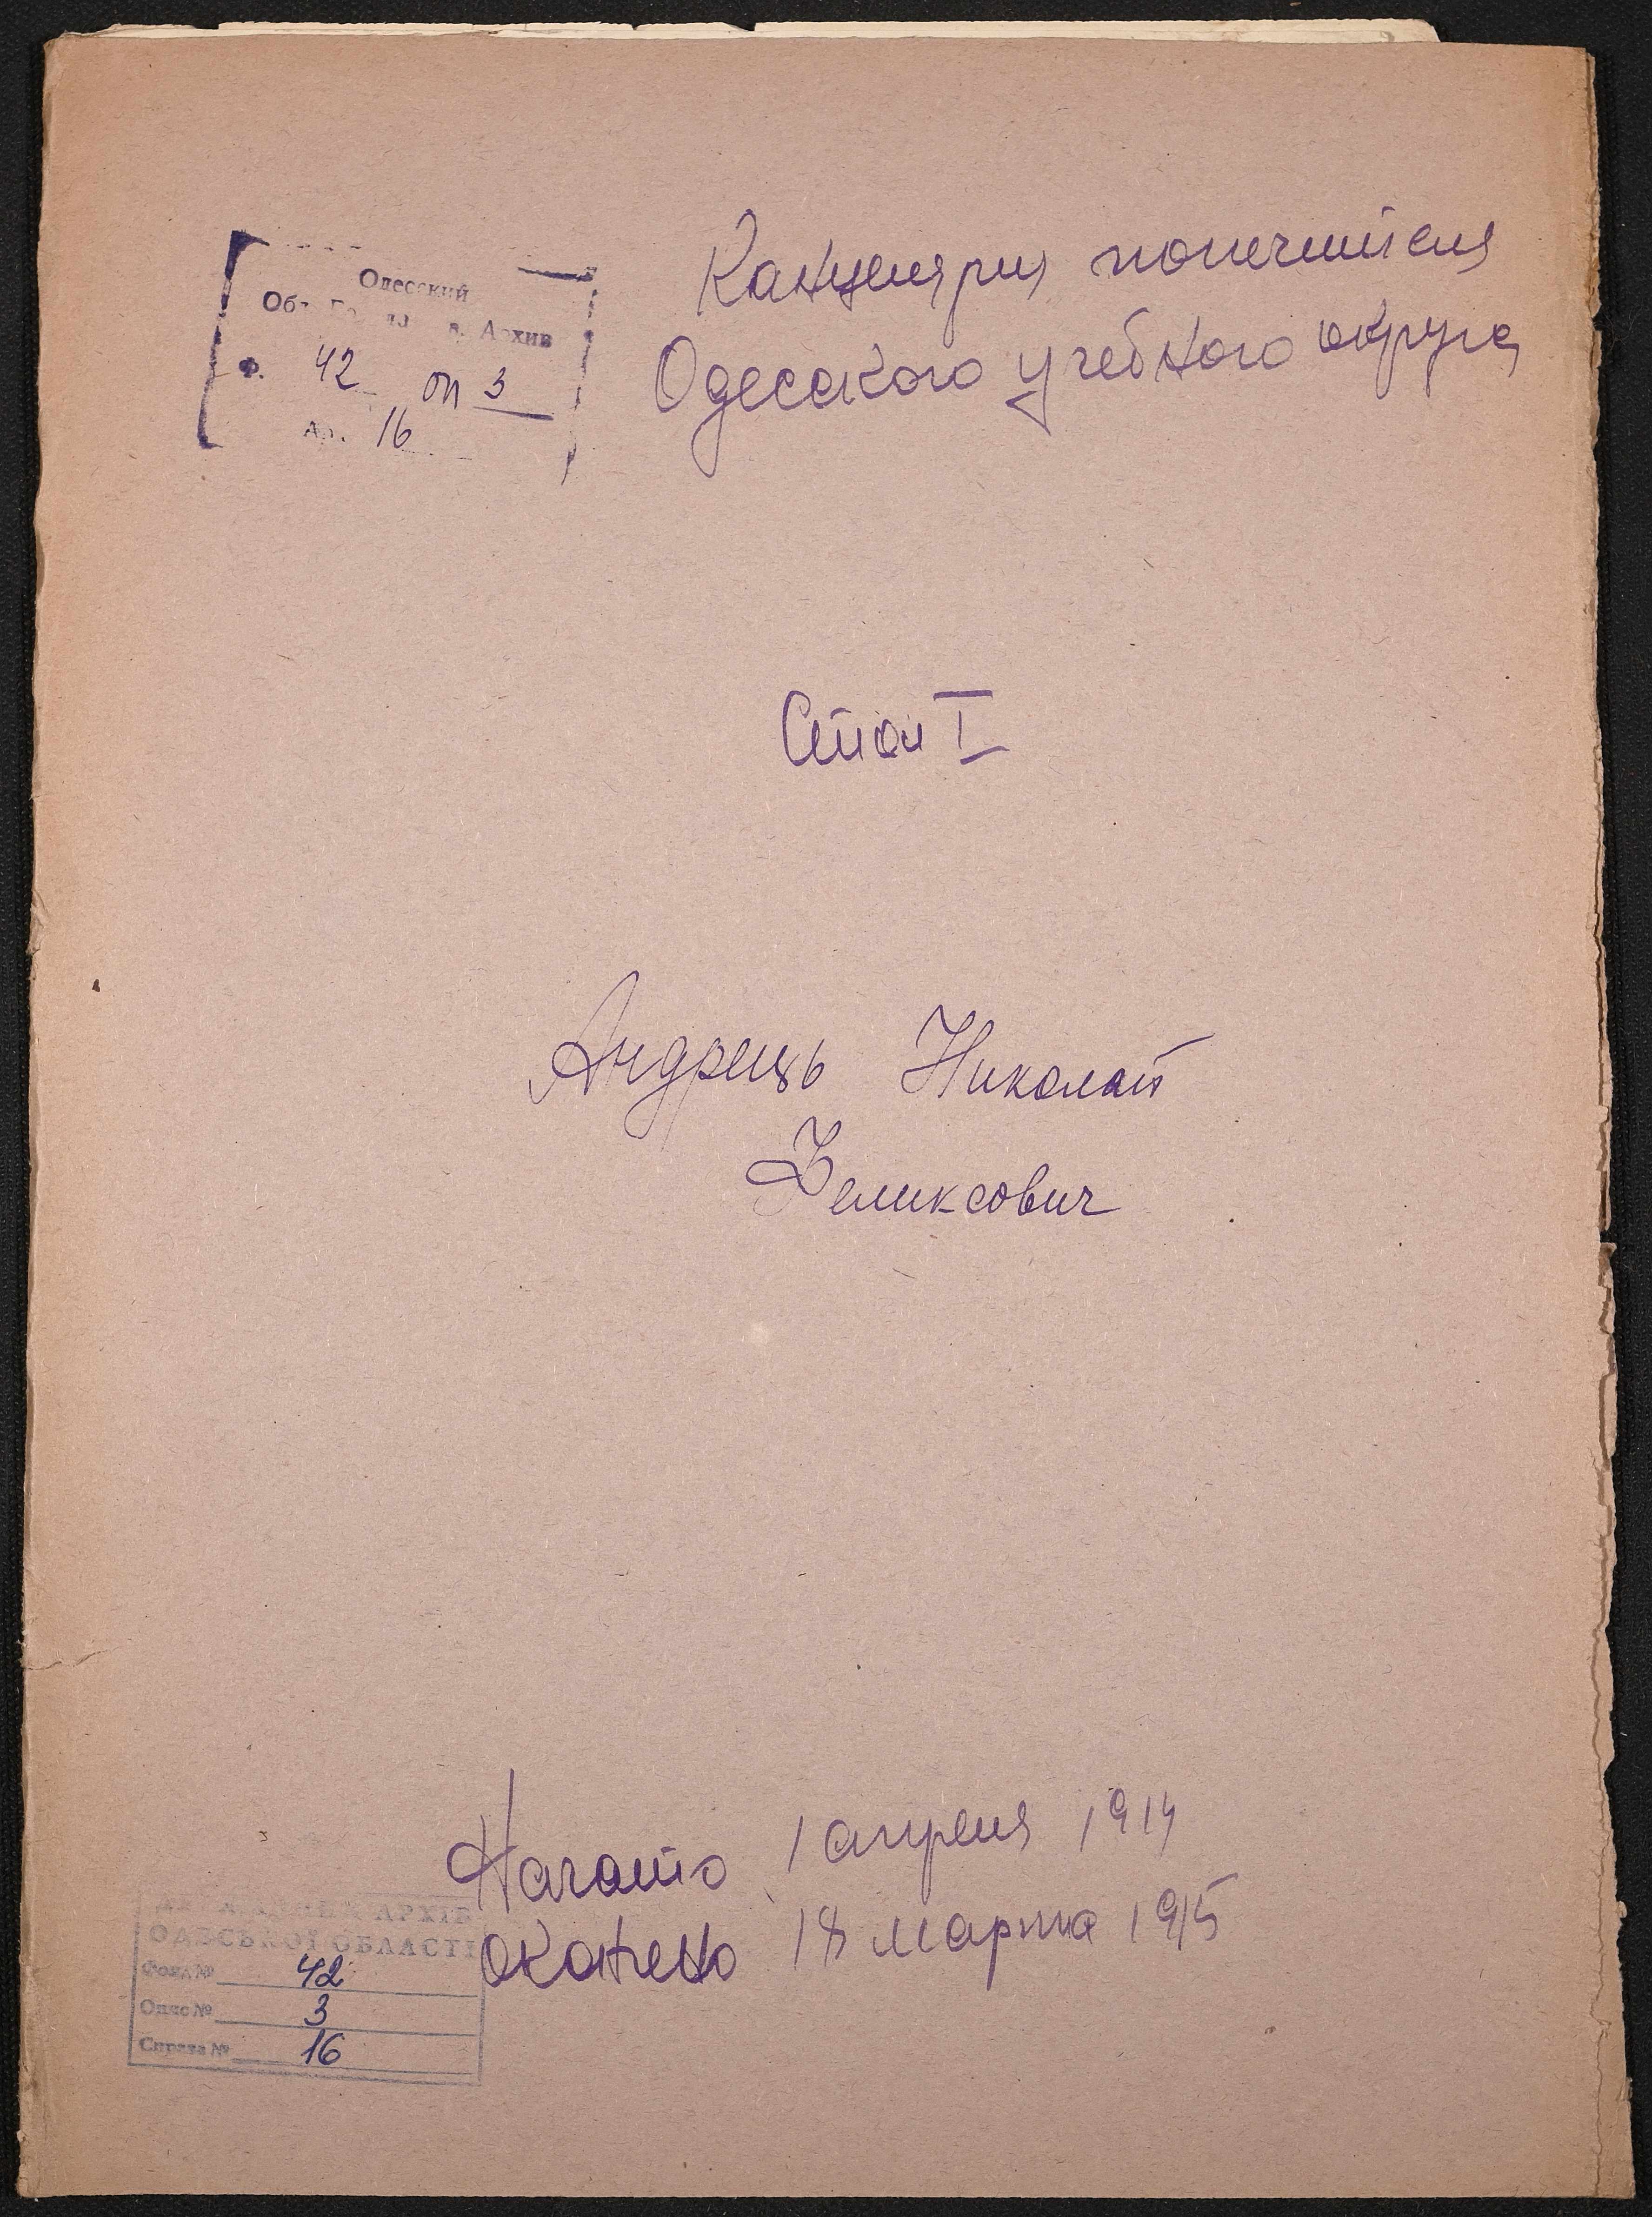 Канцелярия попечителя
Одесского учебного округа
Одесский
Архив
Ф. 42 оп 3
Ар. 16
Стол I
Андрець Николай
Феликсович
Начато 1 апреля 1914
Окончено 18 марта 1915
АРХІВ
ОДЕСЬКОЇ ОБЛАСТІ
Фонд № 42
Опис № 3
Справа № 16